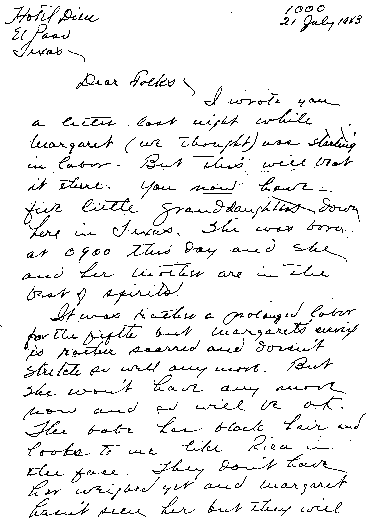 Hotel Dieu
El Paso
Texas
1000
21 July 1943
Dear Folks
I wrote you
a letter last night while
Margaret (we thought) was starting
in labor. But this will beat
it there. You now have
five little granddaughters down
here in Texas. She was born
at 0900 this day and she
and her mother are in the
best of spirits!
It was rather a prolonged labor
for the fifth but Margaret's
is rather scarred and doesn't
stretch so well any more. But
she won't have any more
now and so will be ok.
The babe has black hair and
looks to me like Rica in
the face. They don't have
her weighed yet and Margaret
hasn't seen her but they will